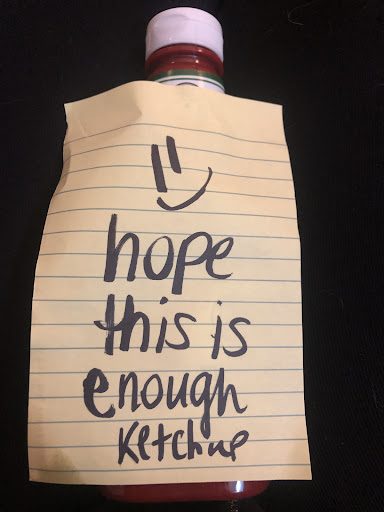 hope
this is
enough
Ketchup